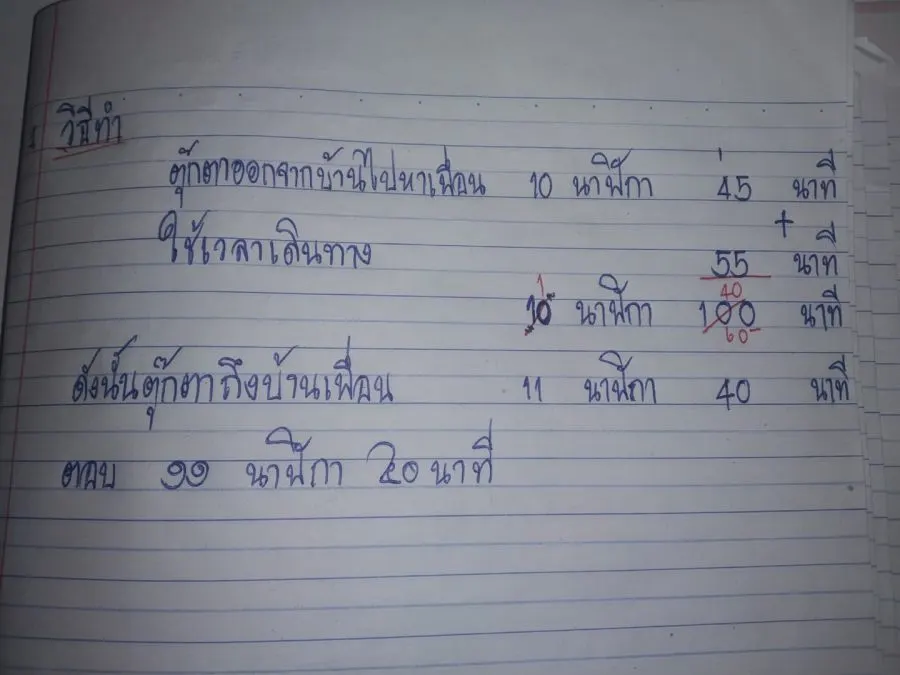 วิธีทำ
ตุ๊กตาออกจากบ้านไปหาเพื่อน 10 นาฬิกา 45 นาที
+
ใช้เวลาเดินทาง 55 นาที
1 40
10 นาฬิกา 100 นาที
60
ดังนั้นตุ๊กตาถึงบ้านเพื่อน 11 นาฬิกา 40 นาที
ตอบ ๑๑ นาฬิกา ๔๐ นาที